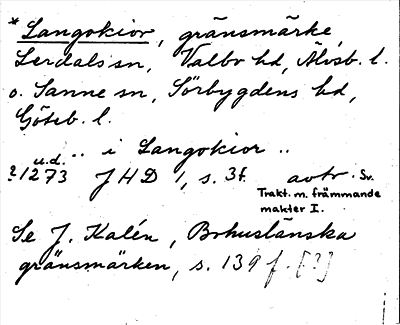 *Langokior, gränsmärke,
Lerdals sn, Valbo hd, Älvsb. l.
o. Sanne sn, Sörbygdens hd,
Göteb. l.
.. i Langokior ..
u.d.
?1273 JHD 1, s. 3f. avtr. Sv.
Trakt. m. främmande
makter I.
Se J. Kalén, Bohuslänska
gränsmärken, s. 139 f. [?]